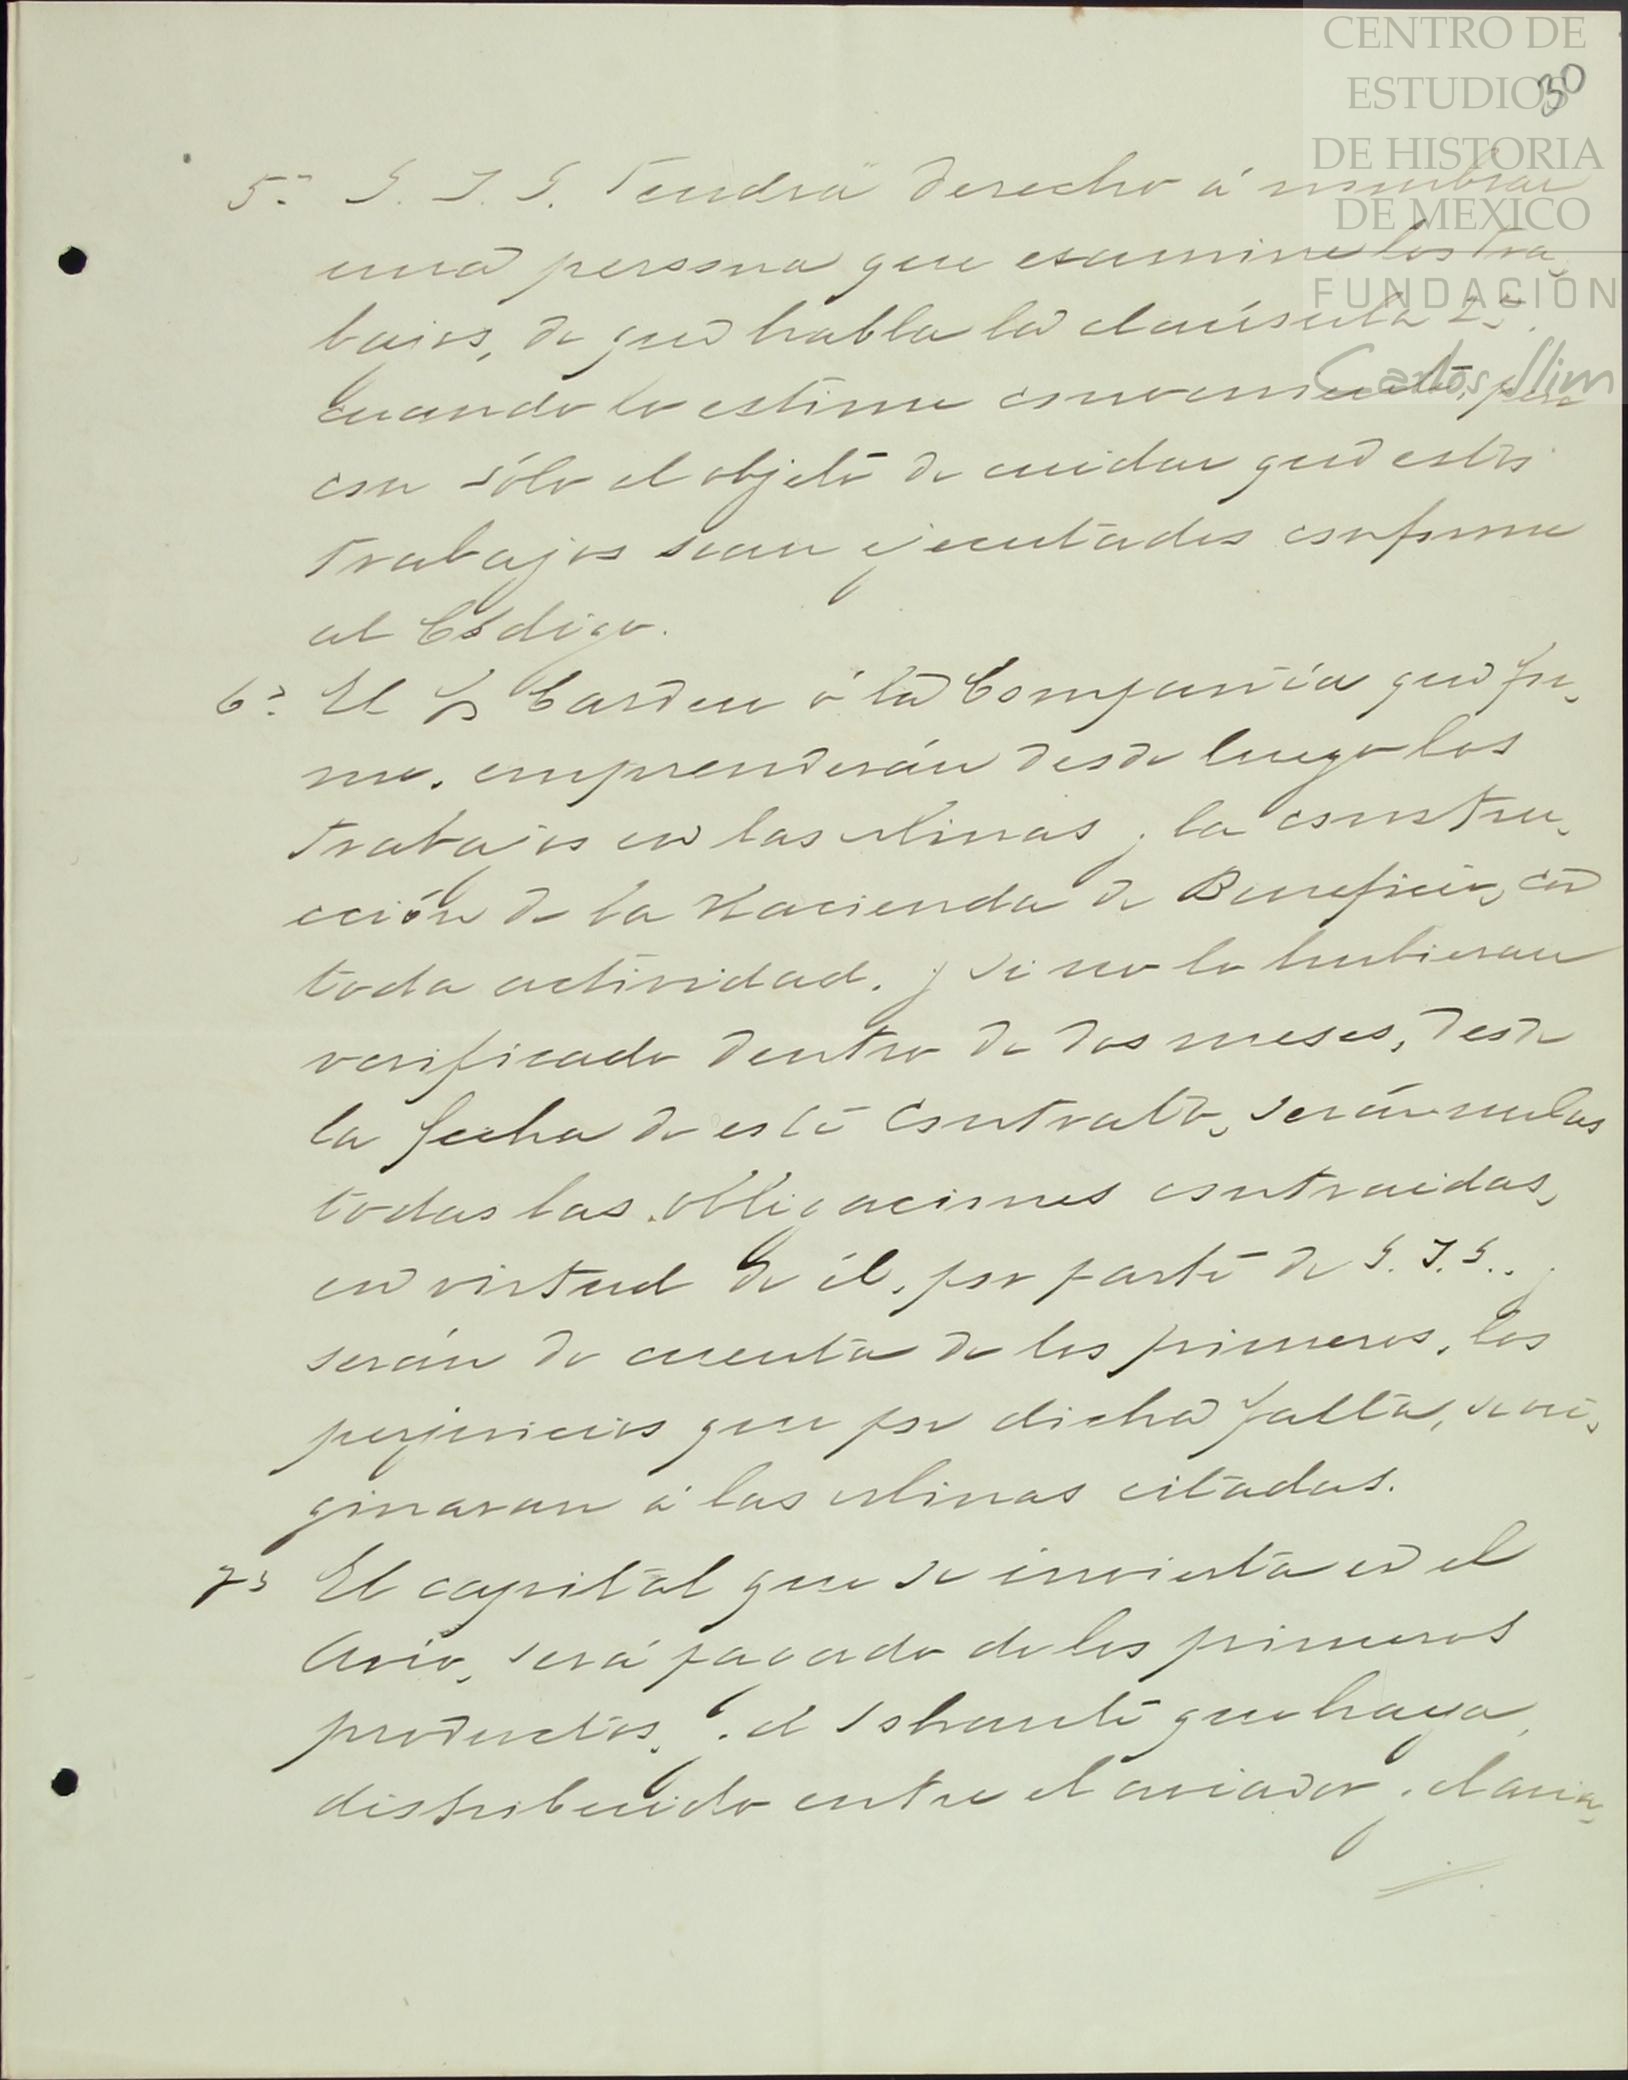 CENTRO DE
ESTUDIOS
DE HISTORIA
DE MEXICO
FUNDACIÓN
Carlos Slim
30
5ª S. I. S. tendrá derecho á nombrar
una persona que examine los tra-
bajos, de que habla la cláusula 2ª
cuando lo estime conveniente, pero
con sólo el objeto de cuidar que estos
trabajos sean ejecutados conforme
al Código.
6ª El Sr Carden ó la Compañía que for-
me, emprenderán desde luego los
trabajos en las Minas y la constru-
cción de la Hacienda de Beneficio, con
toda actividad, y si no lo hubieran
verificado dentro de dos meses, desde
la fecha de este Contrato, serán nulas
todas las obligaciones contraidas,
en virtud de él, por parte de S. I. S., y
serán de cuenta de los primeros, los
perjuicios que por dicha falta, se ori-
ginaran á las Minas citadas.
7ª El capital que se invierta en el
Avío, será pagado de los primeros
productos, y el sobrante que haya,
distribuido entre el aviador y el avia-